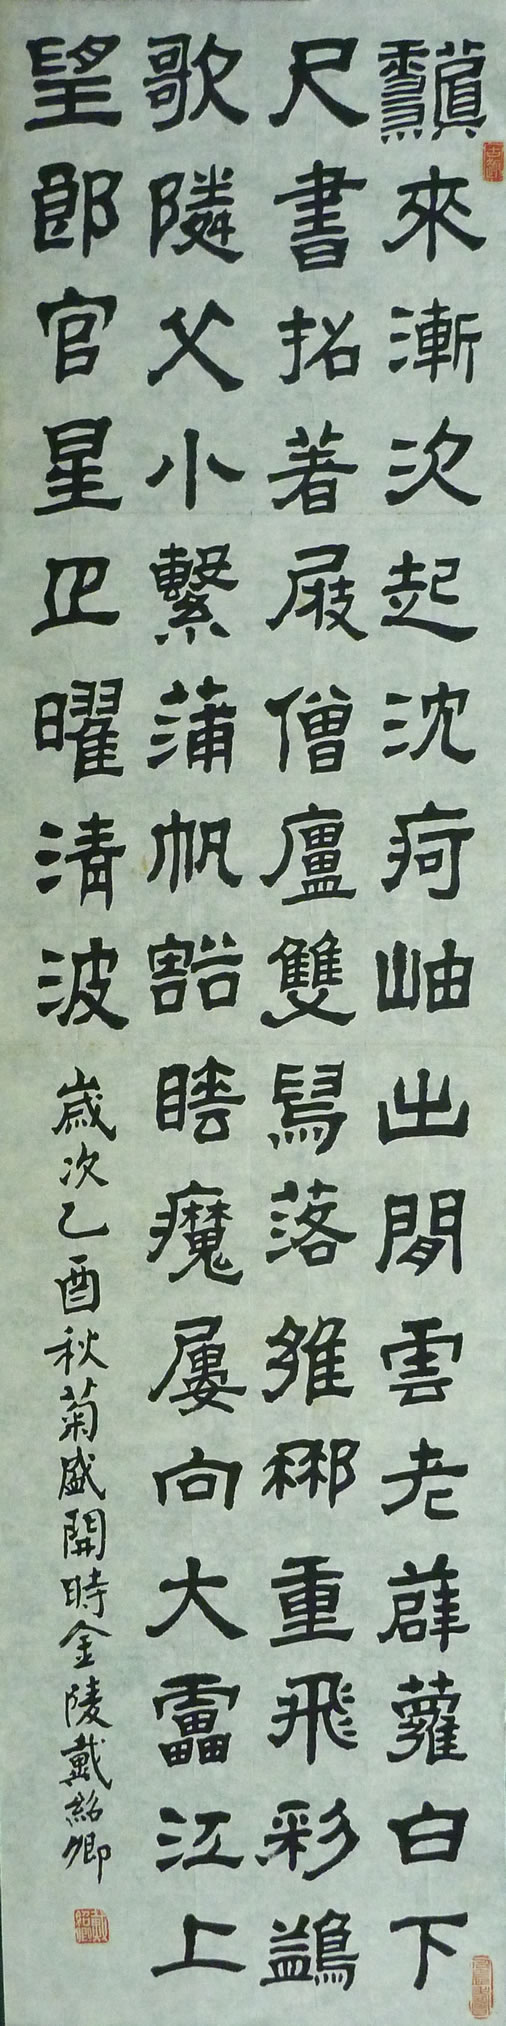 來漸次起沈疴岫出閒雲老薜蘿白下
尺書招著屐僧廬雙舄落郴重飛彩鷁
歌隣父小繫蒲帆豁魔屢向大靁江上
望郎官星正曜清波
歲次乙酉秋菊盛開時金陵戴紹卿